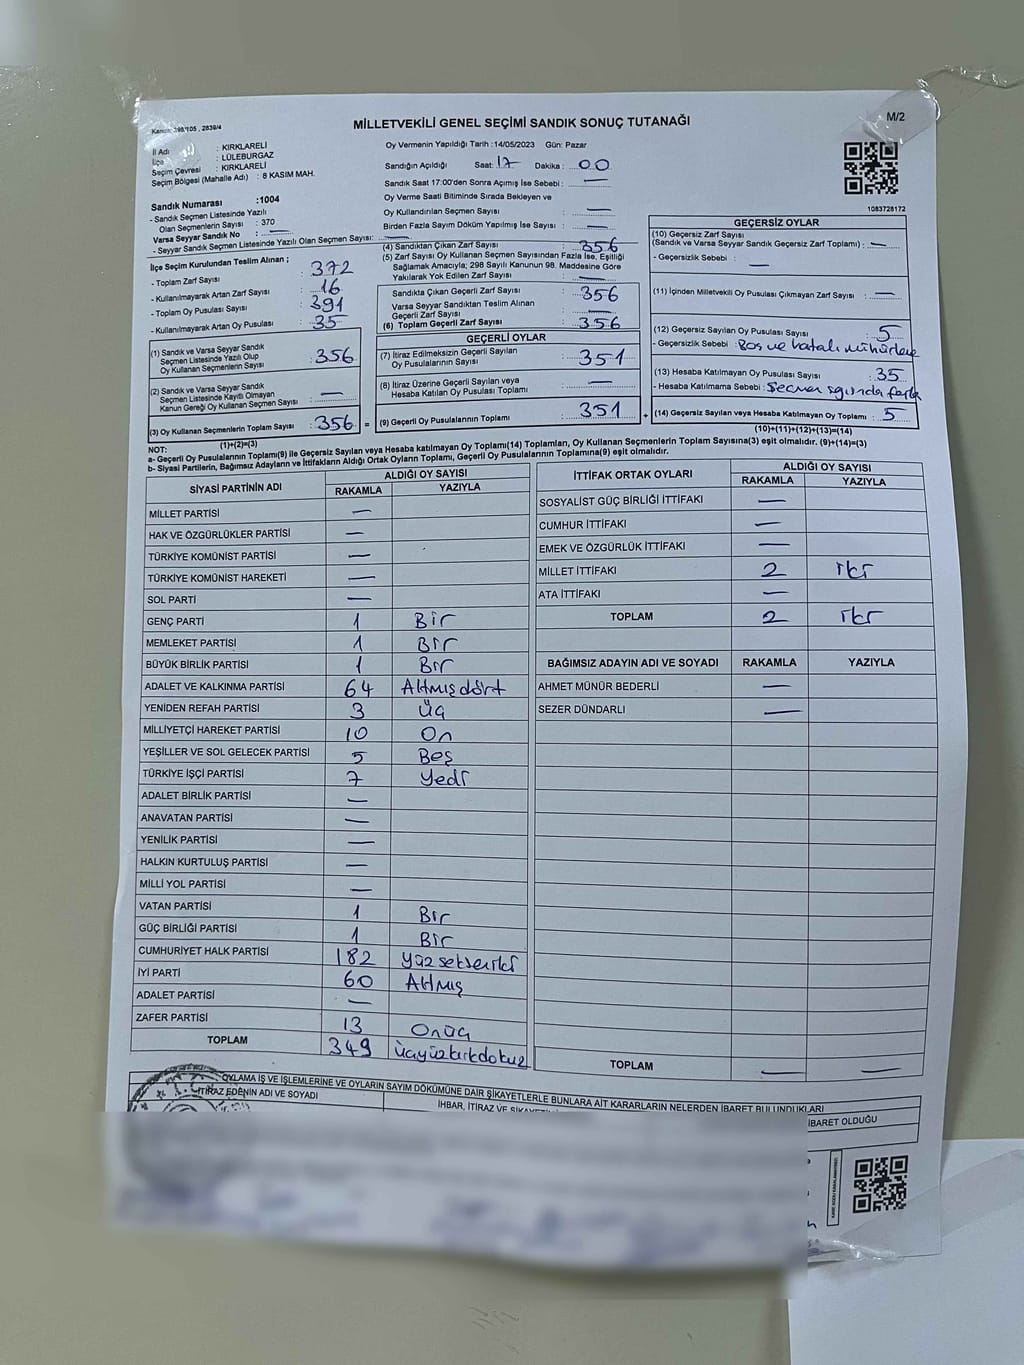 M/2
Kanun: 298/105 , 2839/4
MİLLETVEKİLİ GENEL SEÇİMİ SANDIK SONUÇ TUTANAĞI
İl Adı : KIRKLARELİ
İlçe : LÜLEBURGAZ
Seçim Çevresi : KIRKLARELİ
Seçim Bölgesi (Mahalle Adı) : 8 KASIM MAH.
Oy Vermenin Yapıldığı Tarih :14/05/2023 Gün: Pazar
Sandığın Açıldığı Saat: 17 Dakika : 00
Sandık Saat 17:00'den Sonra Açmış İse Sebebi : —
Oy Verme Saati Bitiminde Sırada Bekleyen ve
Oy Kullandırılan Seçmen Sayısı : —
Birden Fazla Sayım Döküm Yapılmış İse Sayısı : —
1083728172
Sandık Numarası :1004
- Sandık Seçmen Listesinde Yazılı
Olan Seçmenlerin Sayısı : 370
Varsa Seyyar Sandık No : —
- Seyyar Sandık Seçmen Listesinde Yazılı Olan Seçmen Sayısı: —
İlçe Seçim Kurulundan Teslim Alınan ;
- Toplam Zarf Sayısı : 372
- Kullanılmayarak Artan Zarf Sayısı : 16
- Toplam Oy Pusulası Sayısı : 391
- Kullanılmayarak Artan Oy Pusulası : 35
(1) Sandık ve Varsa Seyyar Sandık
Seçmen Listesinde Yazılı Olup
Oy Kullanan Seçmenlerin Sayısı : 356
(2) Sandık ve Varsa Seyyar Sandık
Seçmen Listesinde Kayıtlı Olmayan
Kanun Gereği Oy Kullanan Seçmen Sayısı : —
(3) Oy Kullanan Seçmenlerin Toplam Sayısı : 356 =
(1)+(2)=(3)
(4) Sandıktan Çıkan Zarf Sayısı : 356
(5) Zarf Sayısı Oy Kullanan Seçmen Sayısından Fazla İse, Eşitliği
Sağlamak Amacıyla; 298 Sayılı Kanunun 98. Maddesine Göre
Yakılarak Yok Edilen Zarf Sayısı : —
Sandıkta Çıkan Geçerli Zarf Sayısı : 356
Varsa Seyyar Sandıktan Teslim Alınan
Geçerli Zarf Sayısı : —
(6) Toplam Geçerli Zarf Sayısı : 356
GEÇERLİ OYLAR
(7) İtiraz Edilmeksizin Geçerli Sayılan
Oy Pusulalarının Sayısı : 351
(8) İtiraz Üzerine Geçerli Sayılan veya
Hesaba Katılan Oy Pusulası Toplamı : —
(9) Geçerli Oy Pusulalarının Toplamı : 351 +
GEÇERSİZ OYLAR
(10) Geçersiz Zarf Sayısı
(Sandık ve Varsa Seyyar Sandık Geçersiz Zarf Toplamı) : —
- Geçersizlik Sebebi : —
(11) İçinden Milletvekili Oy Pusulası Çıkmayan Zarf Sayısı : —
(12) Geçersiz Sayılan Oy Pusulası Sayısı : 5
- Geçersizlik Sebebi : Boş ve hatalı mühürleme
(13) Hesaba Katılmayan Oy Pusulası Sayısı : 35
- Hesaba Katılmama Sebebi : Seçmen sayısında fazla
(14) Geçersiz Sayılan veya Hesaba Katılmayan Oy Toplamı : 5
(10)+(11)+(12)+(13)=(14)
NOT:
a- Geçerli Oy Pusulalarının Toplamı(9) ile Geçersiz Sayılan veya Hesaba katılmayan Oy Toplamı(14) Toplamları, Oy Kullanan Seçmenlerin Toplam Sayısına(3) eşit olmalıdır. (9)+(14)=(3)
b- Siyasi Partilerin, Bağımsız Adayların ve İttifakların Aldığı Ortak Oyların Toplamı, Geçerli Oy Pusulalarının Toplamına(9) eşit olmalıdır.
SİYASİ PARTİNİN ADI ALDIĞI OY SAYISI
RAKAMLA YAZIYLA
MİLLET PARTİSİ —
HAK VE ÖZGÜRLÜKLER PARTİSİ —
TÜRKİYE KOMÜNİST PARTİSİ —
TÜRKİYE KOMÜNİST HAREKETİ —
SOL PARTİ —
GENÇ PARTİ 1 Bir
MEMLEKET PARTİSİ 1 Bir
BÜYÜK BİRLİK PARTİSİ 1 Bir
ADALET VE KALKINMA PARTİSİ 64 Altmışdört
YENİDEN REFAH PARTİSİ 3 Üç
MİLLİYETÇİ HAREKET PARTİSİ 10 On
YEŞİLLER VE SOL GELECEK PARTİSİ 5 Beş
TÜRKİYE İŞÇİ PARTİSİ 7 Yedi
ADALET BİRLİK PARTİSİ —
ANAVATAN PARTİSİ —
YENİLİK PARTİSİ —
HALKIN KURTULUŞ PARTİSİ —
MİLLİ YOL PARTİSİ —
VATAN PARTİSİ 1 Bir
GÜÇ BİRLİĞİ PARTİSİ 1 Bir
CUMHURİYET HALK PARTİSİ 182 Yüzsekseniki
İYİ PARTİ 60 Altmış
ADALET PARTİSİ —
ZAFER PARTİSİ 13 Onüç
TOPLAM 349 üçyüzkırkdokuz
İTTİFAK ORTAK OYLARI ALDIĞI OY SAYISI
RAKAMLA YAZIYLA
SOSYALİST GÜÇ BİRLİĞİ İTTİFAKI —
CUMHUR İTTİFAKI —
EMEK VE ÖZGÜRLÜK İTTİFAKI —
MİLLET İTTİFAKI 2 iki
ATA İTTİFAKI —
TOPLAM 2 iki
BAĞIMSIZ ADAYIN ADI VE SOYADI RAKAMLA YAZIYLA
AHMET MÜNÜR BEDERLİ —
SEZER DÜNDARLI —
TOPLAM — —
OYLAMA İŞ VE İŞLEMLERİNE VE OYLARIN SAYIM DÖKÜMÜNE DAİR ŞİKAYETLERLE BUNLARA AİT KARARLARIN NELERDEN İBARET BULUNDUKLARI
İTİRAZ EDENİN ADI VE SOYADI
İHBAR, İTİRAZ VE
İBARET OLDUĞU